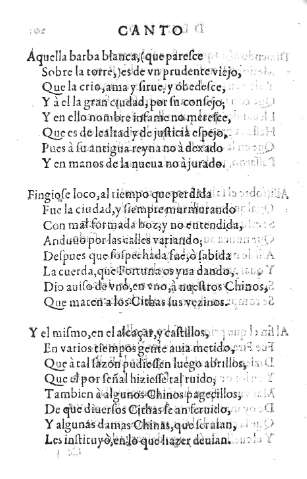 CANTO
Aquella barba blanca, (que paresce
Sobre la torre,) es de vn prudente viejo,
Que la crio, ama y sirue, y obedesce,
Y à el la gran ciudad, por su consejo;
Y en ello nombre infame no meresce,
Que es de lealtad y de justicia espejo,
Pues à su antigua reyna no à dexado
Y en manos de la nueua no à jurado.
Fingiose loco, al tiempo que perdida
Fue la ciudad, y siempre murmurando
Con mal formada boz, y no entendida,
Anduuo por las calles variando,
Despues que sospechada fue, ò sabida
La cuerda, que Fortuna os yua dando,
Dio auiso de vno, en vno, à nuestros Chinos,
Que maten a los Cithas sus vezinos.
Y el mismo, en el alcaçar, y castillos,
En varios tiempos gente auia metido,
Que à tal sazon pudiessen luego abrillos,
Que el por señal hiziesse tal ruido;
Tambien à algunos Chinos pagecillos,
De que diuersos Cithas se an seruido,
Y algunas damas Chinas, que seruian,
Les instituyò, en lo que hazer deuian.